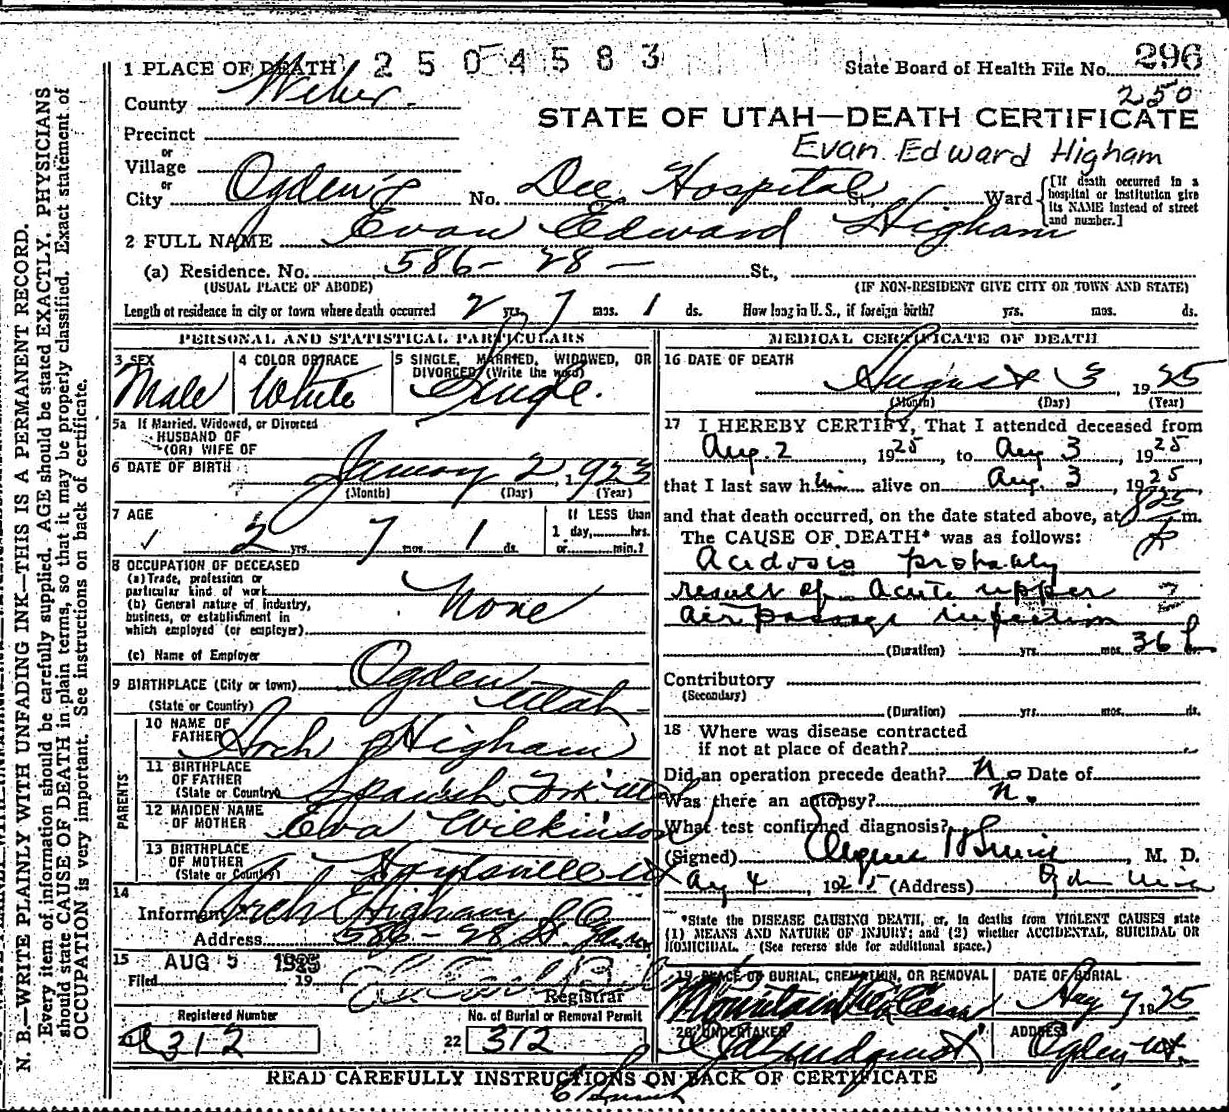 2504583
296
1 PLACE OF DEATH
State Board of Health File No.
250
County Weber
STATE OF UTAH—DEATH CERTIFICATE
Precinct
Evan Edward Higham
or
Village
or
City Ogden No. Dee Hospital St., Ward
[If death occurred in a hospital or institution give its NAME instead of street and number.]
2 FULL NAME Evan Edward Higham
(a) Residence. No. 586-28- St.,
(USUAL PLACE OF ABODE) (IF NON-RESIDENT GIVE CITY OR TOWN AND STATE)
Length of residence in city or town where death occurred 2 yrs. 7 mos. 1 ds. How long in U. S., if foreign birth? yrs. mos. ds.
PERSONAL AND STATISTICAL PARTICULARS
3 SEX
Male
4 COLOR OR RACE
White
5 SINGLE, MARRIED, WIDOWED, OR
DIVORCED (Write the word)
Single.
5a If Married, Widowed, or Divorced
HUSBAND OF
(OR) WIFE OF
6 DATE OF BIRTH January 2, 1923
(Month) (Day) (Year)
7 AGE
2 yrs. 7 mos. 1 ds.
If LESS than
1 day, hrs.
or min.?
8 OCCUPATION OF DECEASED
(a) Trade, profession or
particular kind of work
None
(b) General nature of industry,
business, or establishment in
which employed (or employer)
(c) Name of Employer
9 BIRTHPLACE (City or town) Ogden
(State or Country) Utah
PARENTS
10 NAME OF
FATHER Arch Higham
11 BIRTHPLACE
OF FATHER
(State or Country) Spanish Fork Utah
12 MAIDEN NAME
OF MOTHER Eva Wilkinson
13 BIRTHPLACE
OF MOTHER
(State or Country) Hoytsville Ut
14
Informant Arch Higham
Address 586-28 St. Ogden
15
Filed AUG 5 1925 19
Registrar
Registered Number
21 312
No. of Burial or Removal Permit
22 312
MEDICAL CERTIFICATE OF DEATH
16 DATE OF DEATH
August 3 1925
(Month) (Day) (Year)
17 I HEREBY CERTIFY, That I attended deceased from
Aug. 2, 1925, to Aug 3, 1925,
that I last saw him alive on Aug. 3, 1925
and that death occurred, on the date stated above, at 825 P m.
The CAUSE OF DEATH* was as follows:
Acidosis probably
result of acute upper
air passage infection
(Duration) yrs. mos. 36 h
Contributory
(Secondary)
(Duration) yrs. mos. ds.
18 Where was disease contracted
if not at place of death?
Did an operation precede death? No Date of
Was there an autopsy? No
What test confirmed diagnosis?
(Signed) , M. D.
Aug 4, 1925 (Address)
*State the DISEASE CAUSING DEATH, or, in deaths from VIOLENT CAUSES state
(1) MEANS AND NATURE OF INJURY; and (2) whether ACCIDENTAL, SUICIDAL OR
HOMICIDAL. (See reverse side for additional space.)
19 PLACE OF BURIAL, CREMATION, OR REMOVAL
Mountain View Cem
DATE OF BURIAL
Aug 7 1925
20 UNDERTAKER
Lindquist
ADDRESS
Ogden Ut.
READ CAREFULLY INSTRUCTIONS ON BACK OF CERTIFICATE
N. B.—WRITE PLAINLY WITH UNFADING INK—THIS IS A PERMANENT RECORD.
Every item of information should be carefully supplied. AGE should be stated EXACTLY. PHYSICIANS
should state CAUSE OF DEATH in plain terms, so that it may be properly classified. Exact statement of
OCCUPATION is very important. See instructions on back of certificate.